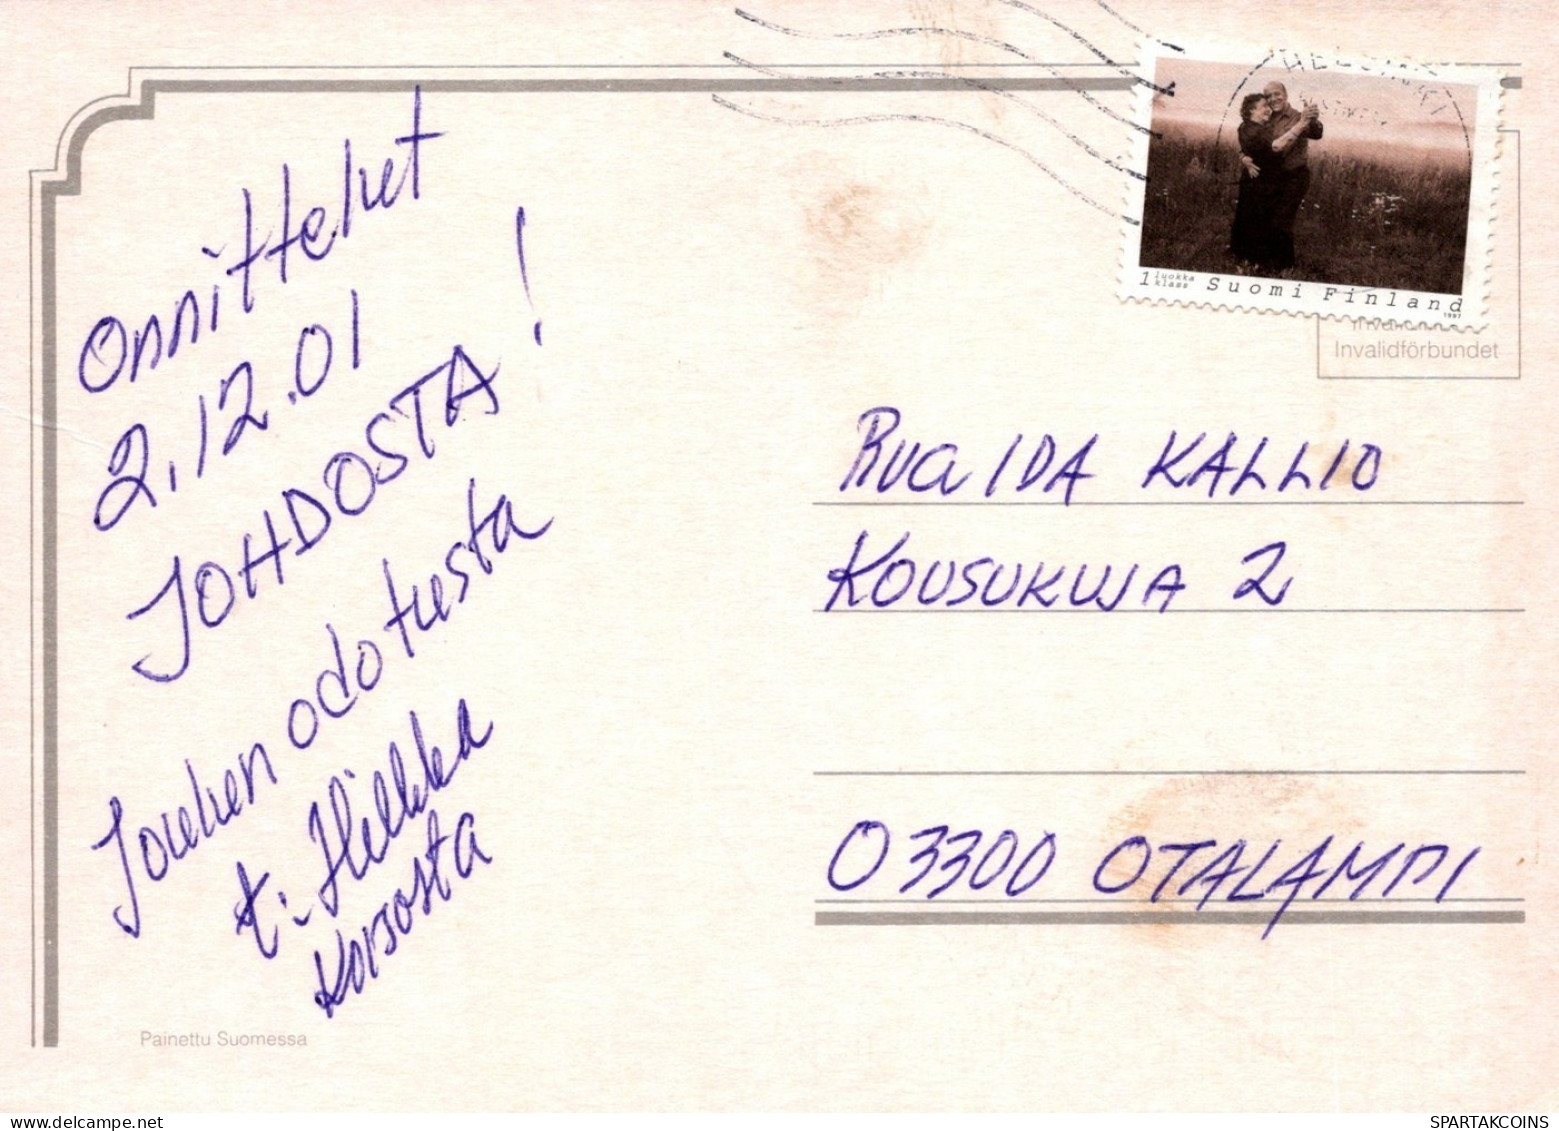 Onnittelut
2.12.01
JOHDOSTA!
Joulun odotusta
t: Hilkka
Korsosta
Painettu Suomessa
HELSINKI
1 luokka
klass
Suomi Finland
1997
Invalidförbundet
Rva IDA KALLIO
KOUSUKUJA 2
03300 OTALAMPI
delcampe.net
SPARTAKCOINS